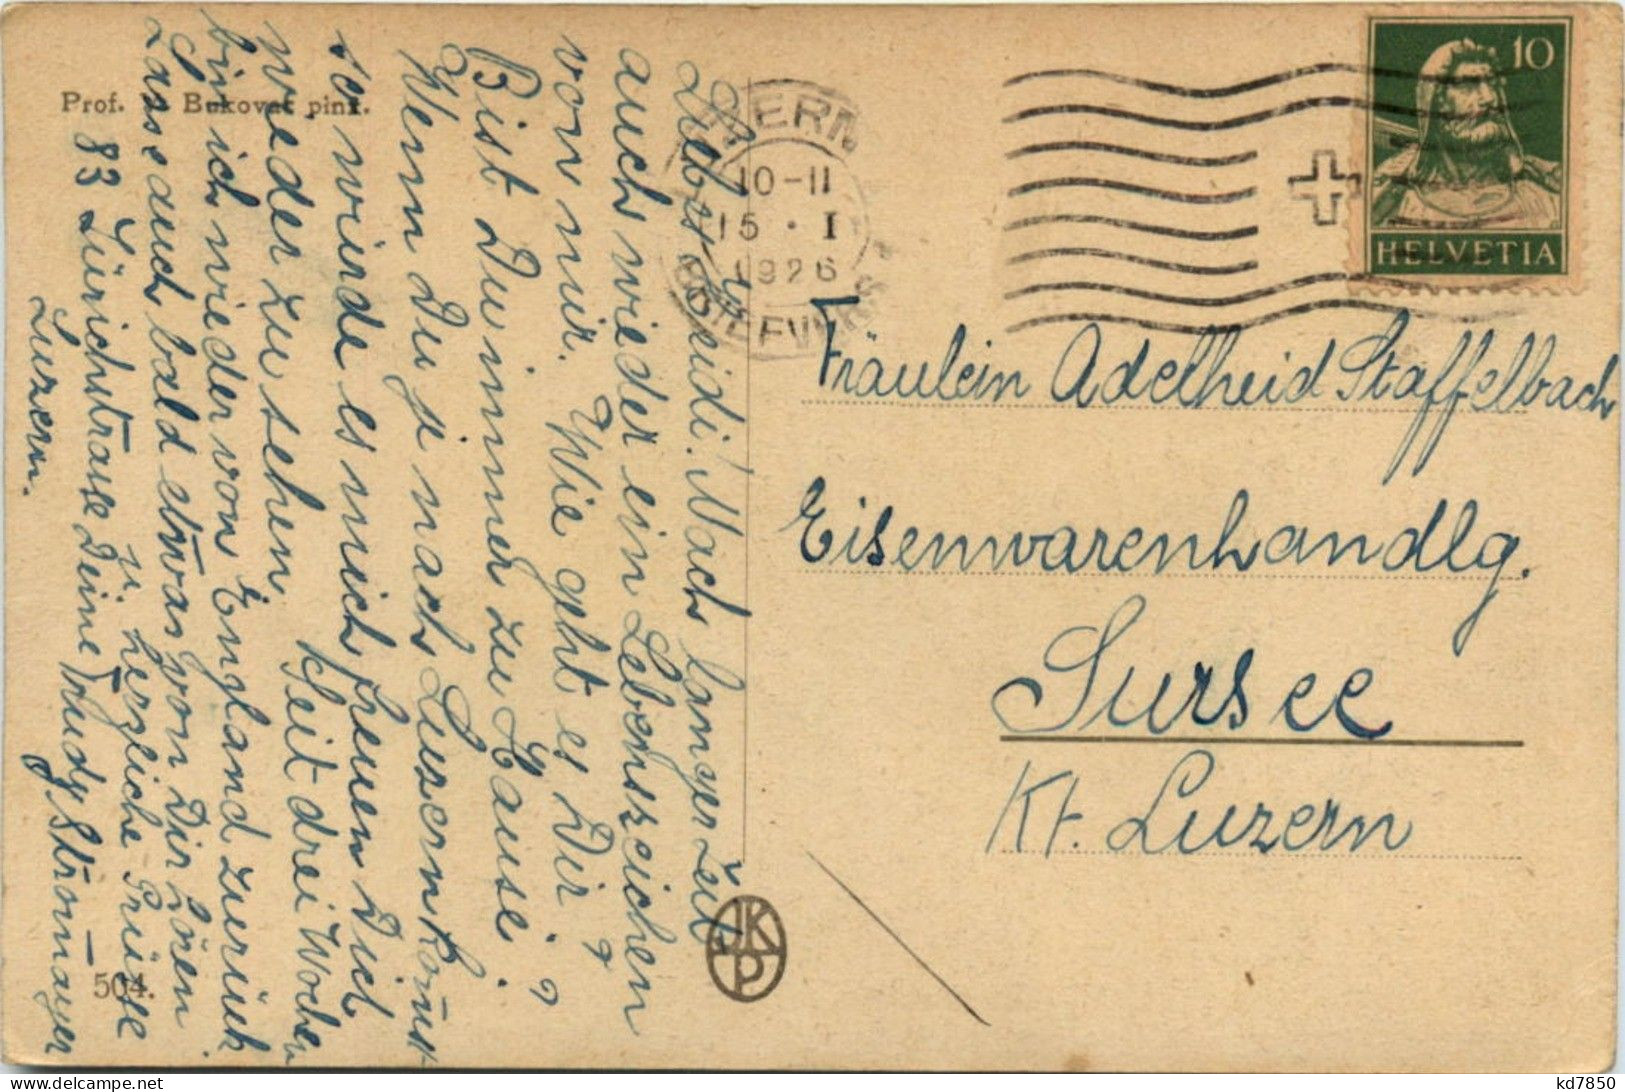 Prof. Bukovac pinx.
LUZERN
10-11
15 · I
1926
BRIEFVERS.
10
HELVETIA
Liebes Heidi. Nach langer Zeit
auch wieder ein Lebenszeichen
von mir. Wie geht es Dir?
Bist Du immer zu Hause?
Wenn Du je nach Luzern kommst
so würde es mich freuen Dich
wieder zu sehen. Seit drei Wochen
bin ich wieder von England zurück
Lasse auch bald etwas von Dir hören
u. herzliche Grüsse
83 Zürichstrasse Deine Trudy Stromayer
Luzern.
504.
JKP
Fräulein Adelheid Staffelbach
Eisenwarenhandlg.
Sursee
Kt. Luzern
delcampe.net
kd7850